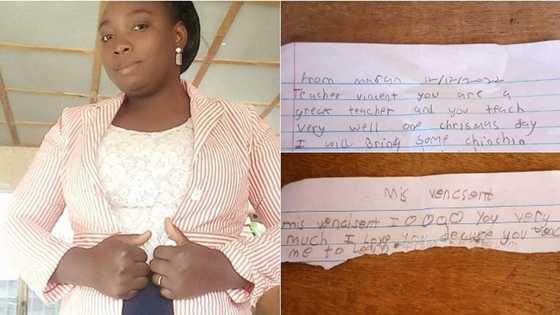 From 12/12/2022
Teacher vincent you are a
great teacher and you teach
very well one chrismas day
I will Bring some chinchin
Mis vencsent
mis vencisent I You very
much I love you because you
me to